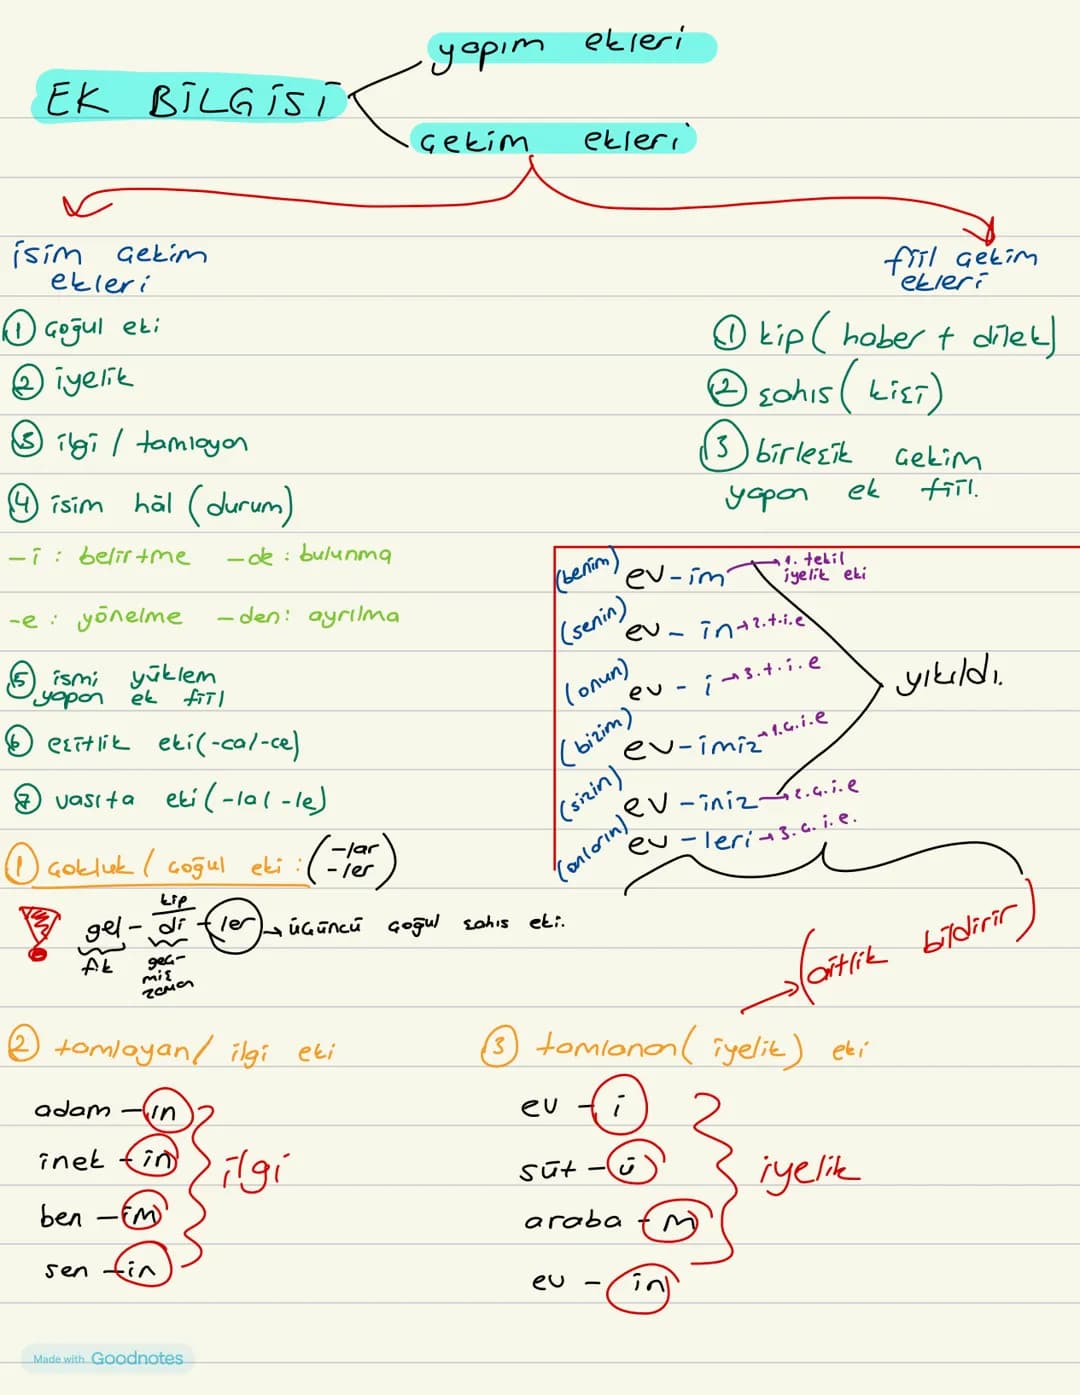 yapım ekleri
EK BİLGİSİ
çekim ekleri
isim çekim
ekleri
fiil çekim
ekleri
① çoğul eki
② iyelik
③ ilgi / tamlayan
④ isim hâl (durum)
-i : belirtme -de : bulunma
-e : yönelme -den : ayrılma
⑤ ismi yüklem
yapan ek fiil
⑥ eşitlik eki (-ca/-ce)
⑦ vasıta eki (-la/-le)
① kip (haber + dilek)
② şahıs (kişi)
③ birleşik çekim
yapan ek fiil.
(benim) ev-im → 1. tekil
iyelik eki
(senin) ev-in → 2.t.i.e
(onun) ev-i → 3.t.i.e
(bizim) ev-imiz → 1.ç.i.e
(sizin) ev-iniz → 2.ç.i.e
(onların) ev-leri → 3.ç.i.e.
yıkıldı.
→ (aitlik bildirir)
① çokluk / çoğul eki : (-lar
-ler)
kip
gel-di-ler → üçüncü çoğul şahıs eki.
fik
geç-
miş
zaman
② tamlayan / ilgi eki
adam-ın
inek-in
ben-im
sen-in
ilgi
③ tamlanan (iyelik) eki
ev-i
süt-ü
araba-m
ev-in
iyelik
Made with Goodnotes